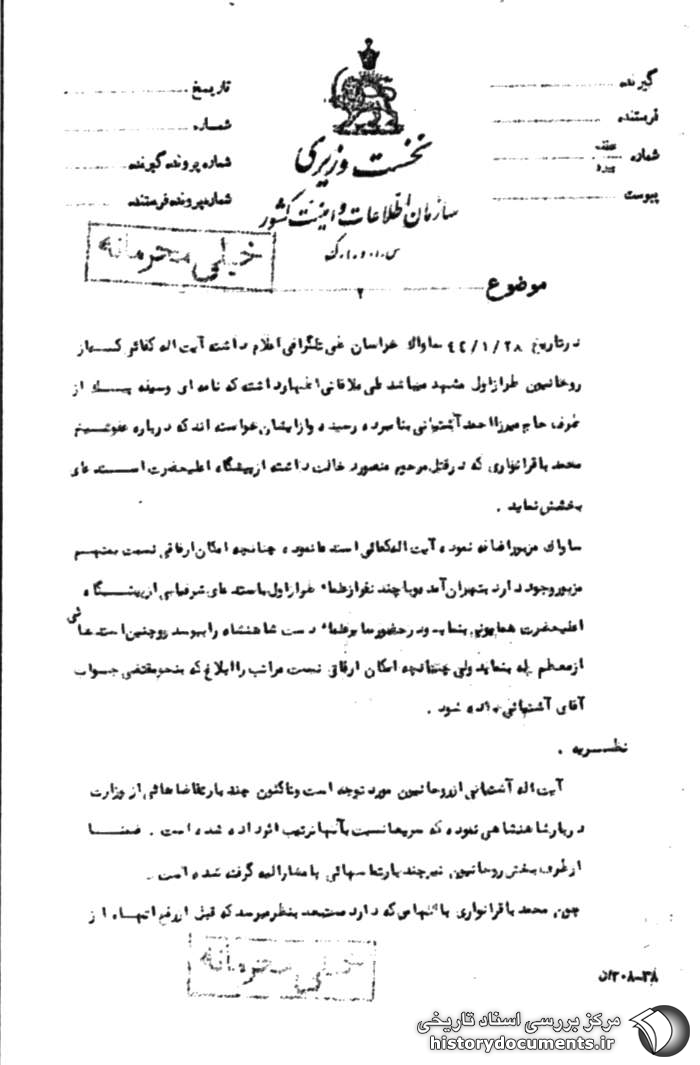 گیرنده
فرستنده
شماره عطف پیرو
پیوست
نخست وزیری
سازمان اطلاعات و امنیت کشور
س.ا.و.ا.ک
تاریخ
شماره
شماره پرونده گیرنده
شماره پرونده فرستنده
خیلی محرمانه
موضوع ۲
در تاریخ ۴۴/۱/۲۸ ساواک خراسان طی تلگرافی اعلام داشته آیت اله کفائی که از
روحانیون طراز اول مشهد میباشد طی ملاقاتی اظهار داشته که نامه ای وسیله پیک از
طرف حاج میرزا احمد آشتیانی بنامبرده رسیده و از ایشان خواسته اند که درباره عفو شیخ
محمد باقر انواری که در قتل مرحوم منصور دخالت داشته از پیشگاه اعلیحضرت استدعای
بخشش نماید .
ساواک مزبور اضافه نموده آیت اله کفائی استدعا نموده چنانچه امکان ارفاقی نسبت بمتهم
مزبور وجود دارد بتهران آمده و با چند نفر از علماء طراز اول باستدعای شرفیابی از پیشگاه
اعلیحضرت همایونی بنماید و در حضور سایر علماء دست شاهنشاه را ببوسد و چنین استدعائی
از معظم له بنماید ولی چنانچه امکان ارفاقی نیست مراتب را ابلاغ که بنحو مقتضی جواب
آقای آشتیانی داده شود .
نظریه .
آیت اله آشتیانی از روحانیون مورد توجه است و تاکنون چند بار تقاضاهائی از وزارت
دربار شاهنشاهی نموده که سریعا نسبت بآنها ترتیب اثر داده شده است . ضمنا
از طرف بخش روحانیون نیز چند بار تماسهائی با مشارالیه گرفته شده است .
چون محمد باقر انواری با اتهامی که دارد بنظر میرسد که قبل از رفع اتهام از
خیلی محرمانه
۲۰۸-۳۸/ن
مرکز بررسی اسناد تاریخی
historydocuments.ir